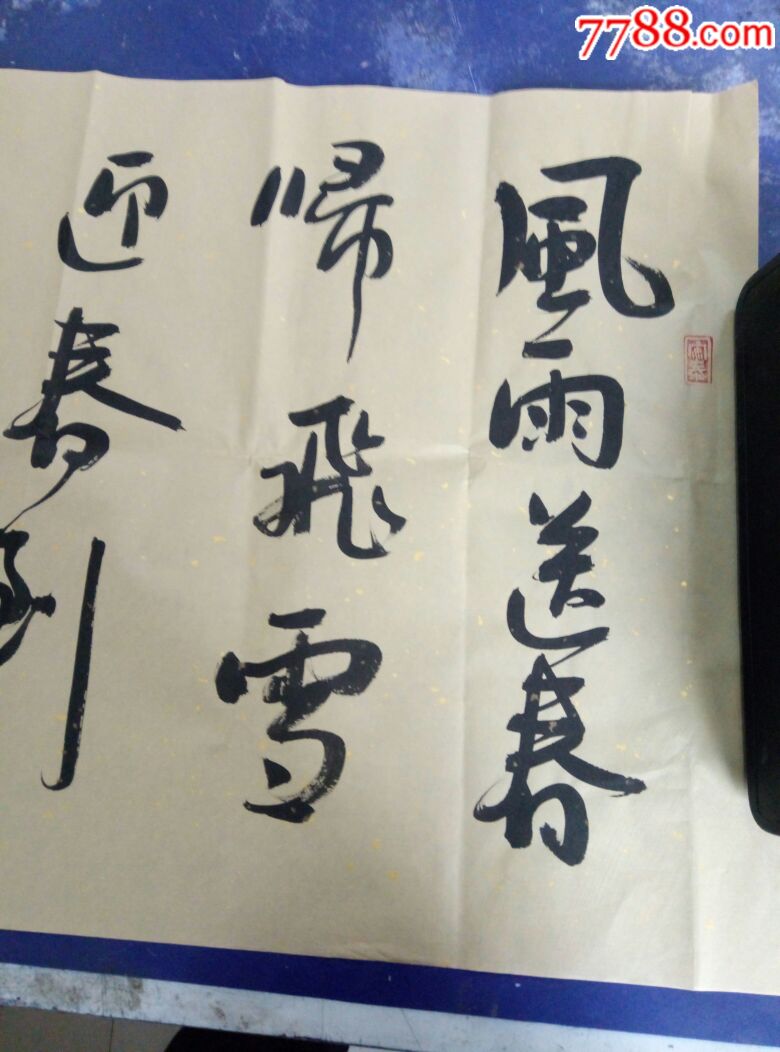 7788.com
風雨送春
歸飛雪
迎春到